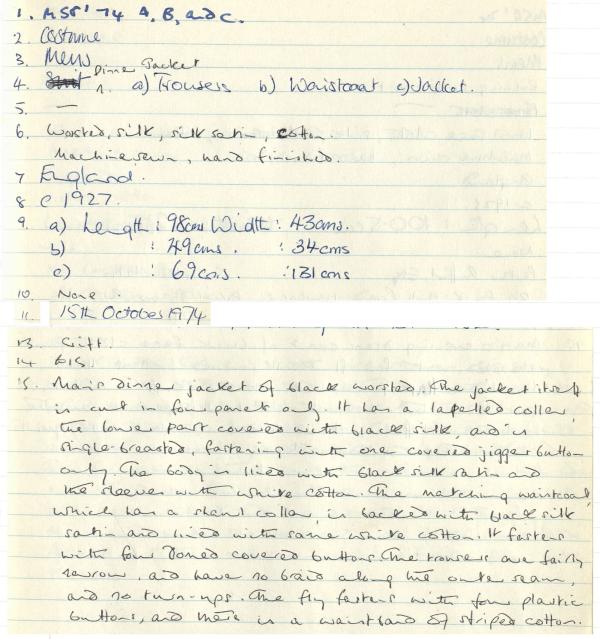 1. MSS' 74 A, B, and C.
2. Costume
3. Mens
Dinner Jacket
4. Suit 1. a) Trousers b) Waistcoat c) Jacket.
5. —
6. Worsted, silk, silk satin, cotton.
Machine sewn, hand finished.
7 England.
8 c 1927.
9. a) Length : 98cms Width : 43cms.
b) : 49cms . : 34cms
c) : 69cms. : 131cms
10. None.
11. 15th October 1974
13. Gift.
14 £15.
15. Man's dinner jacket of black worsted. The jacket itself
is cut in four panels only. It has a lapelled collar,
the lower part covered with black silk, and is
single-breasted, fastening with one covered jigger button
only. The body is lined with black silk satin and
the sleeves with white cotton. The matching waistcoat,
which has a shawl collar, is backed with black silk
satin and lined with same white cotton. It fastens
with four domed covered buttons. The trousers are fairly
narrow, and have no braid along the outer seam,
and no turn-ups. The fly fastens with four plastic
buttons, and there is a waistband of striped cotton.